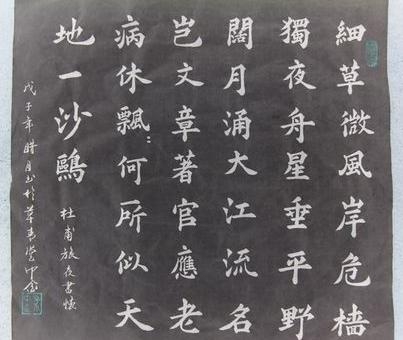 細草微風岸危檣
獨夜舟星垂平野
闊月涌大江流名
豈文章著官應老
病休飄〻何所似天
地一沙鷗
杜甫旅夜書懷
戊子年腊月